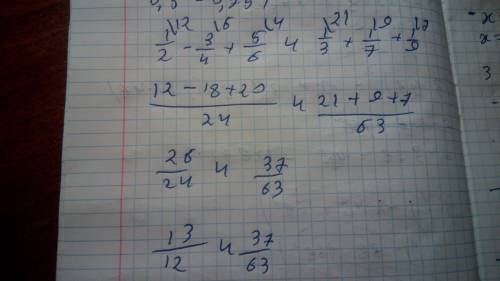 1/2 \12 - 3/4 \6 + 5/6 \4 и 1/3 \21 + 1/7 \9 + 1/9 \7
12 - 18 + 20 / 24 и 21 + 9 + 7 / 63
26/24 и 37/63
13/12 и 37/63